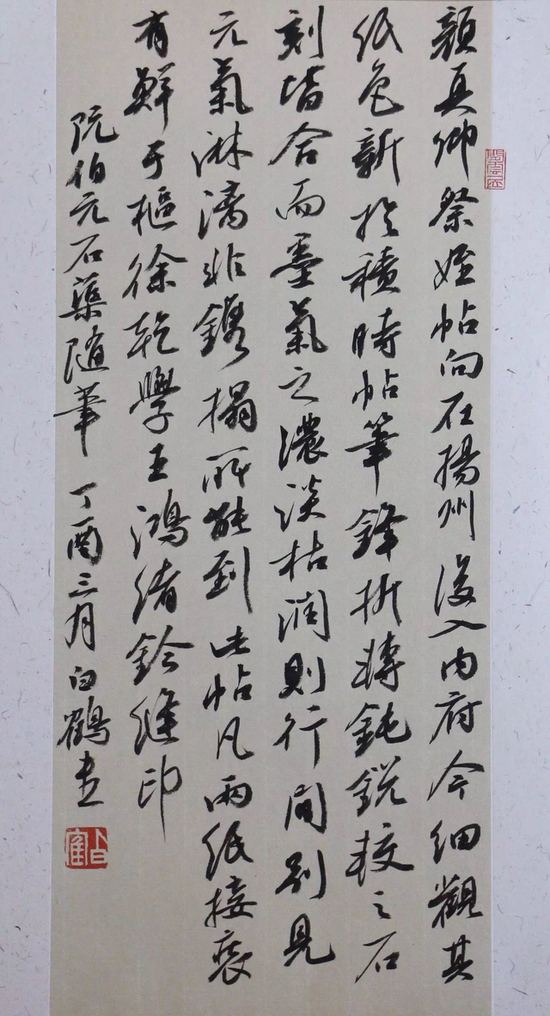 顏真卿祭姪帖向在揚州後入內府今細觀其
紙色新於積時帖筆鋒折轉鈍銳較之石
刻皆合而墨氣之濃淡枯潤則行間別見
元氣淋漓非鐫搨所能到此帖凡兩紙接裝
有鮮于樞徐乾學王鴻緒鈐縫印
阮伯元石渠隨筆 丁酉三月白鶴書
白鶴